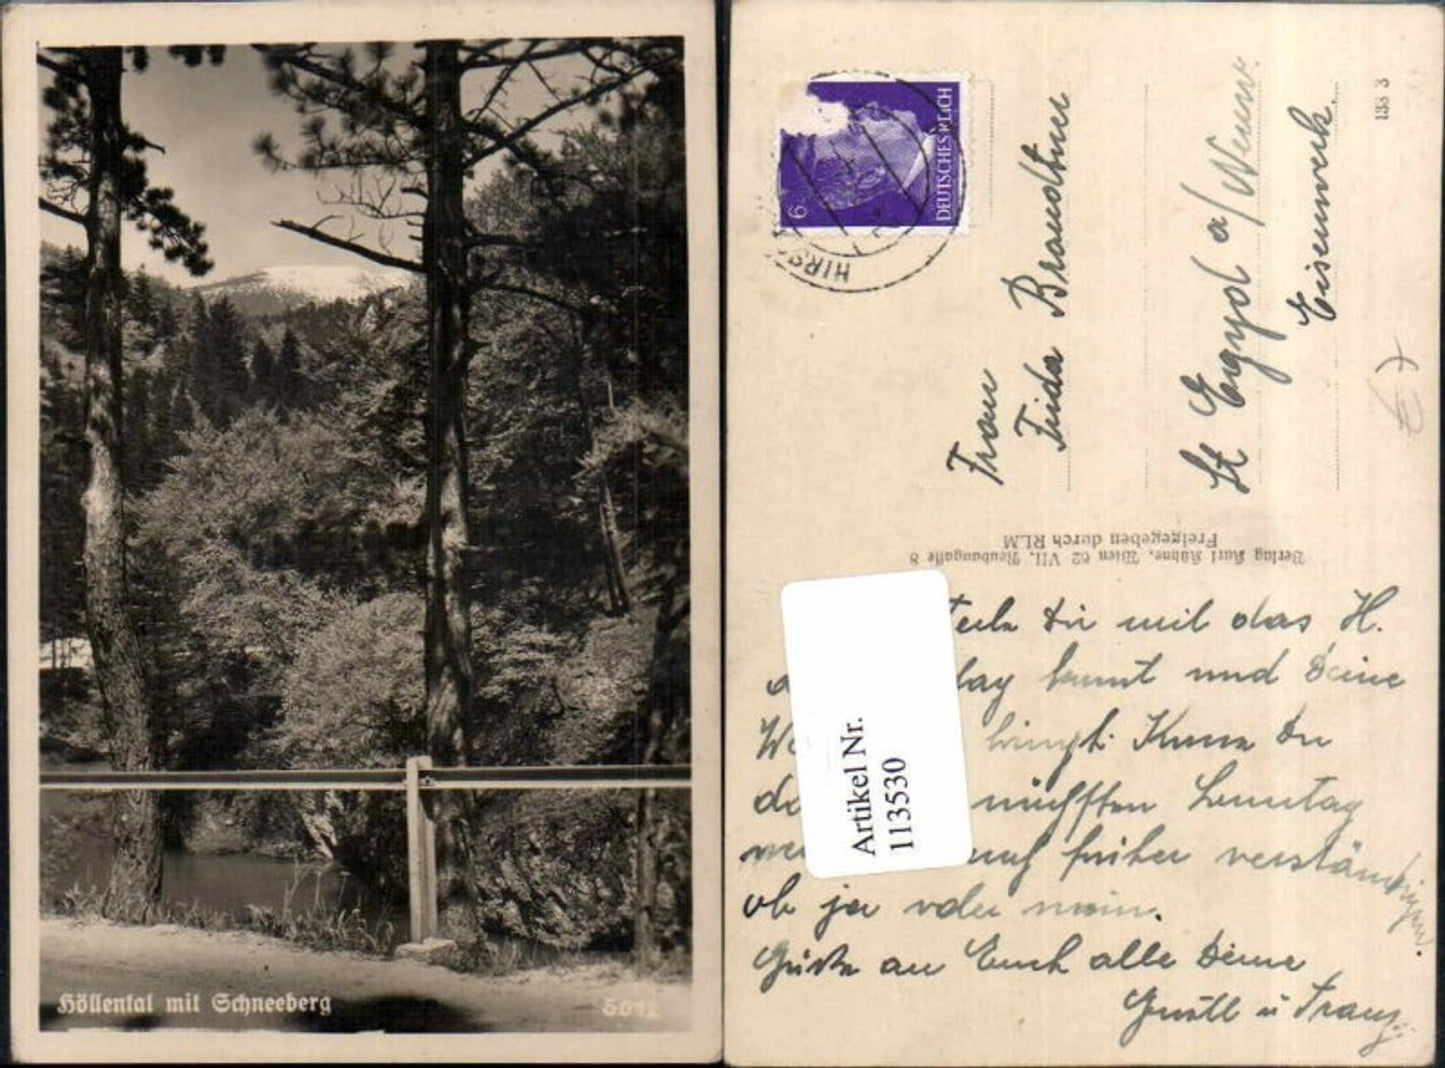 Höllental mit Schneeberg
5012
6
DEUTSCHES REICH
HIRS
Frau
Frida Brandtner
St Egyd a/Neuw.
Eisenwerk.
133 3
Verlag Karl Kühne, Wien 62 VII, Neubaugasse 8
Freigegeben durch RLM
Artikel Nr.
113530
Dir mit das H.
kommt und Deine
bringt. Kann Du
Sonntag
früher verständigen.
ob ja oder nein.
Grüße an Euch alle Deine
Gustl u Franz